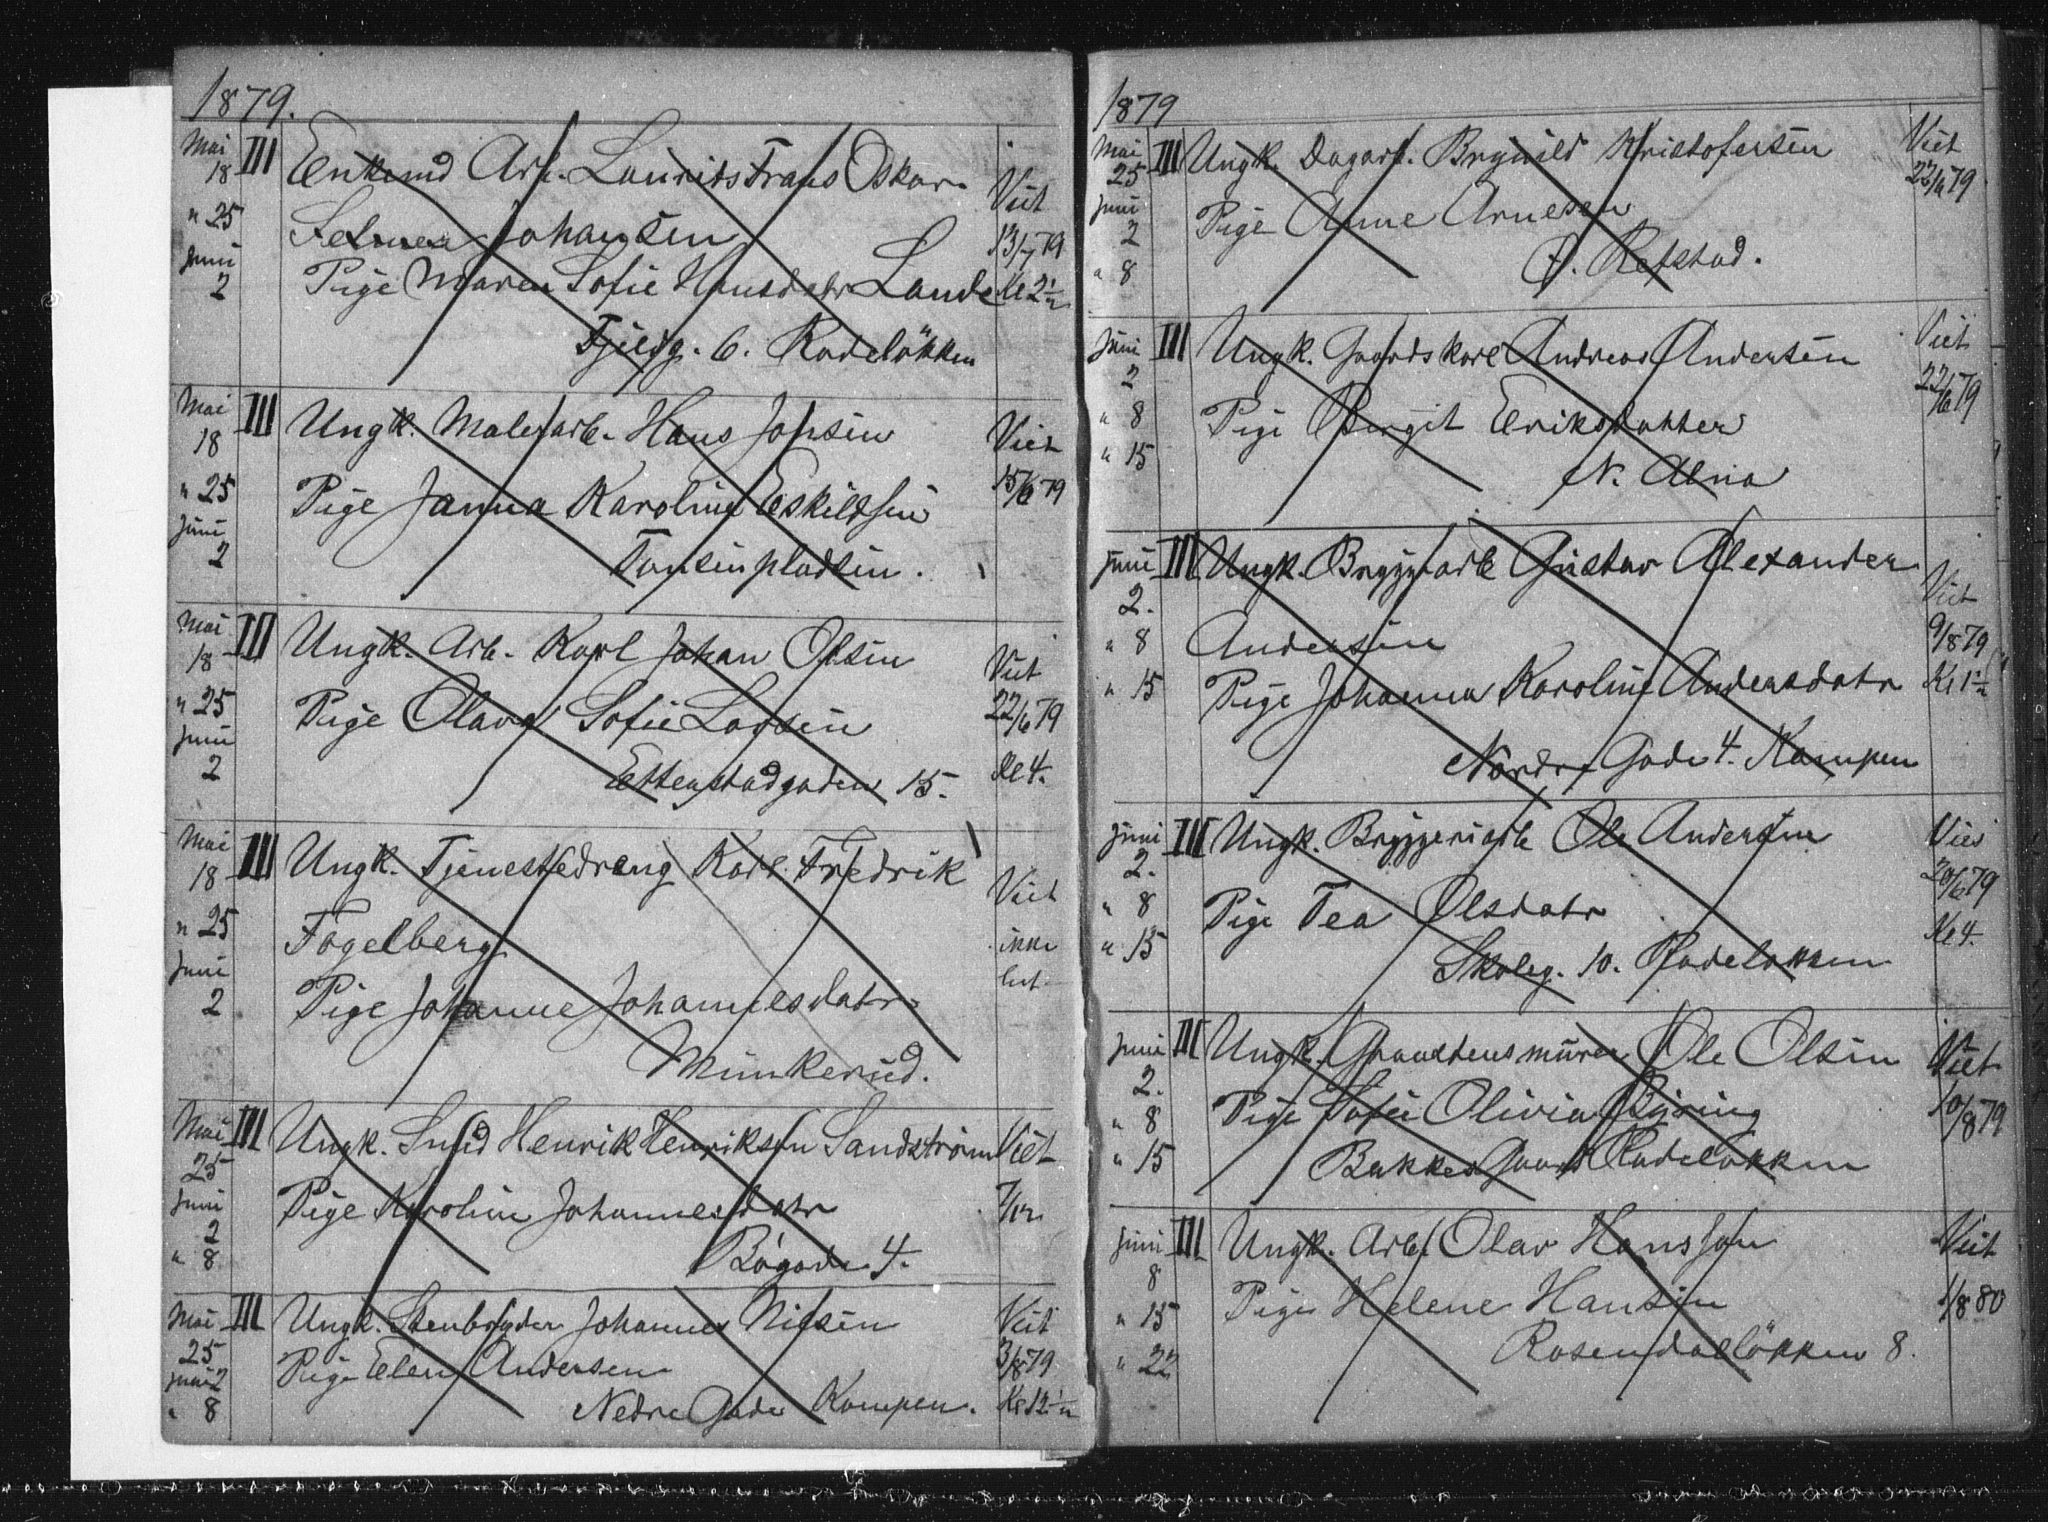 1879.
Mai 18 III Enkemd Arb. Laurits Frans Oskar
" 25 Johansen Viet 13/7 79
Juni 2 Pige Maren Sofie Hansdatr Lande Kl 2 1/2
Fjeldg. 6. Rodeløkken
Mai 18 III Ungk. Malerarb. Hans Jonsen Viet
" 25 Pige Janna Karoline Eskildsen 15/6 79
Juni 2 Tonsenpladsen.
Mai 18 III Ungk. Arb. Karl Johan Olsen Viet
" 25 Pige Olava Sofie Larsen 22/6 79
Juni 2 Etterstadgaden 15. Kl 4.
Mai 18 III Ungk. Tjenestedreng Karl Fredrik Viet
" 25 Fogelberg ikke
Juni 2 Pige Johanne Johannesdatr
Munkerud.
Mai 25 III Ungk. Smed Henrik Henriksen Sandstrøm Viet
Juni 2 Pige Karoline Johannesdatr 7/12
" 8 Bøgade 4.
Mai 25 III Ungk. Stenbryder Johannes Nilsen Viet
Juni 2 Pige Elen Andersen 3/8 79
" 8 Nedre Gade Kampen. Kl 12 1/2
1879
Mai 25 III Ungk. Dagarb. Brynild Kristofersen Viet 22/6 79
Juni 2 Pige Anne Arnesen
" 8 Ø. Refstad.
Juni 2 III Ungk. Gaardskarl Andreas Andersen Viet
" 8 Pige Bergit Eriksdatter 22/6 79
" 15 N. Alna
Juni 2. III Ungk. Bryggiarb Gustav Alexander Viet
" 8 Andersen 9/8 79
" 15 Pige Johanna Karoline Andersdatr Kl 1 1/2
Nordre Gade 4. Kampen
Juni 2. III Ungk. Bryggeriarb Ole Andersen Viet 20/6 79
" 8 Pige Tea Olsdatr Kl 4.
" 15 Skoleg. 10. Rodeløkken
Juni 2. III Ungk. Graastensmurer Ole Olsen Viet
" 8 Pige Sofie Olivia Bjøring 10/8 79
" 15 Bakkes Gaard Rodeløkken
Juni 8 III Ungk. Arb. Olav Hanssen Viet
" 15 Pige Helene Hansen 1/8 80
" 22 Rosendalløkken 8.